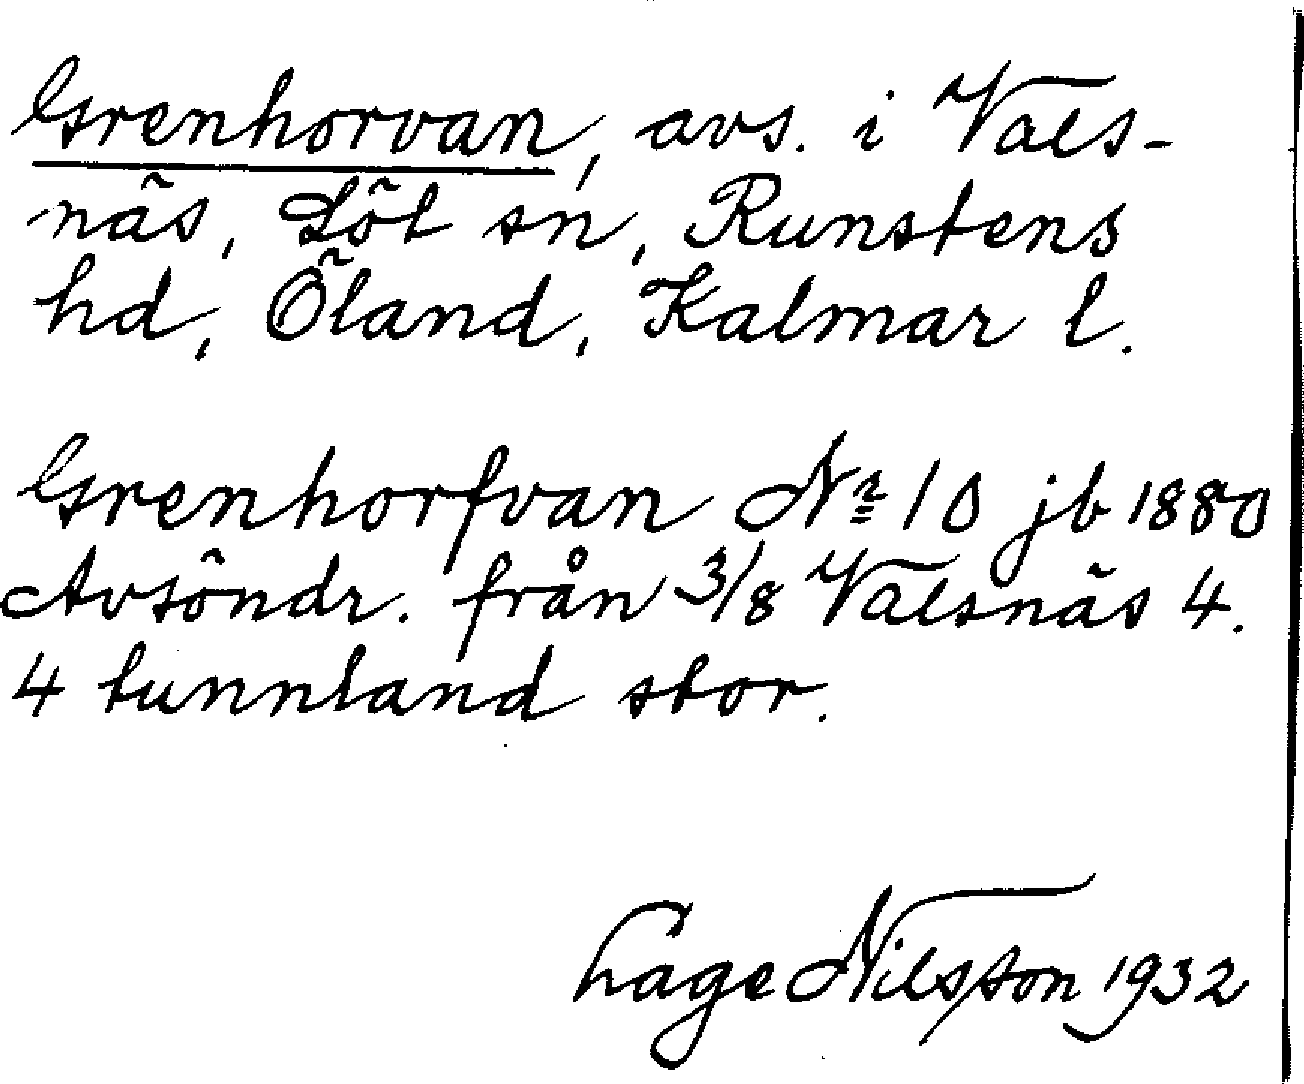 Grenhorvan, avs. i Vals-
näs, Löt sn, Runstens
hd, Öland, Kalmar l.
Grenhorfvan Nr 10 jb 1880
Avsöndr. från 3/8 Valsnäs 4.
4 tunnland stor.
Lage Nilsson 1932